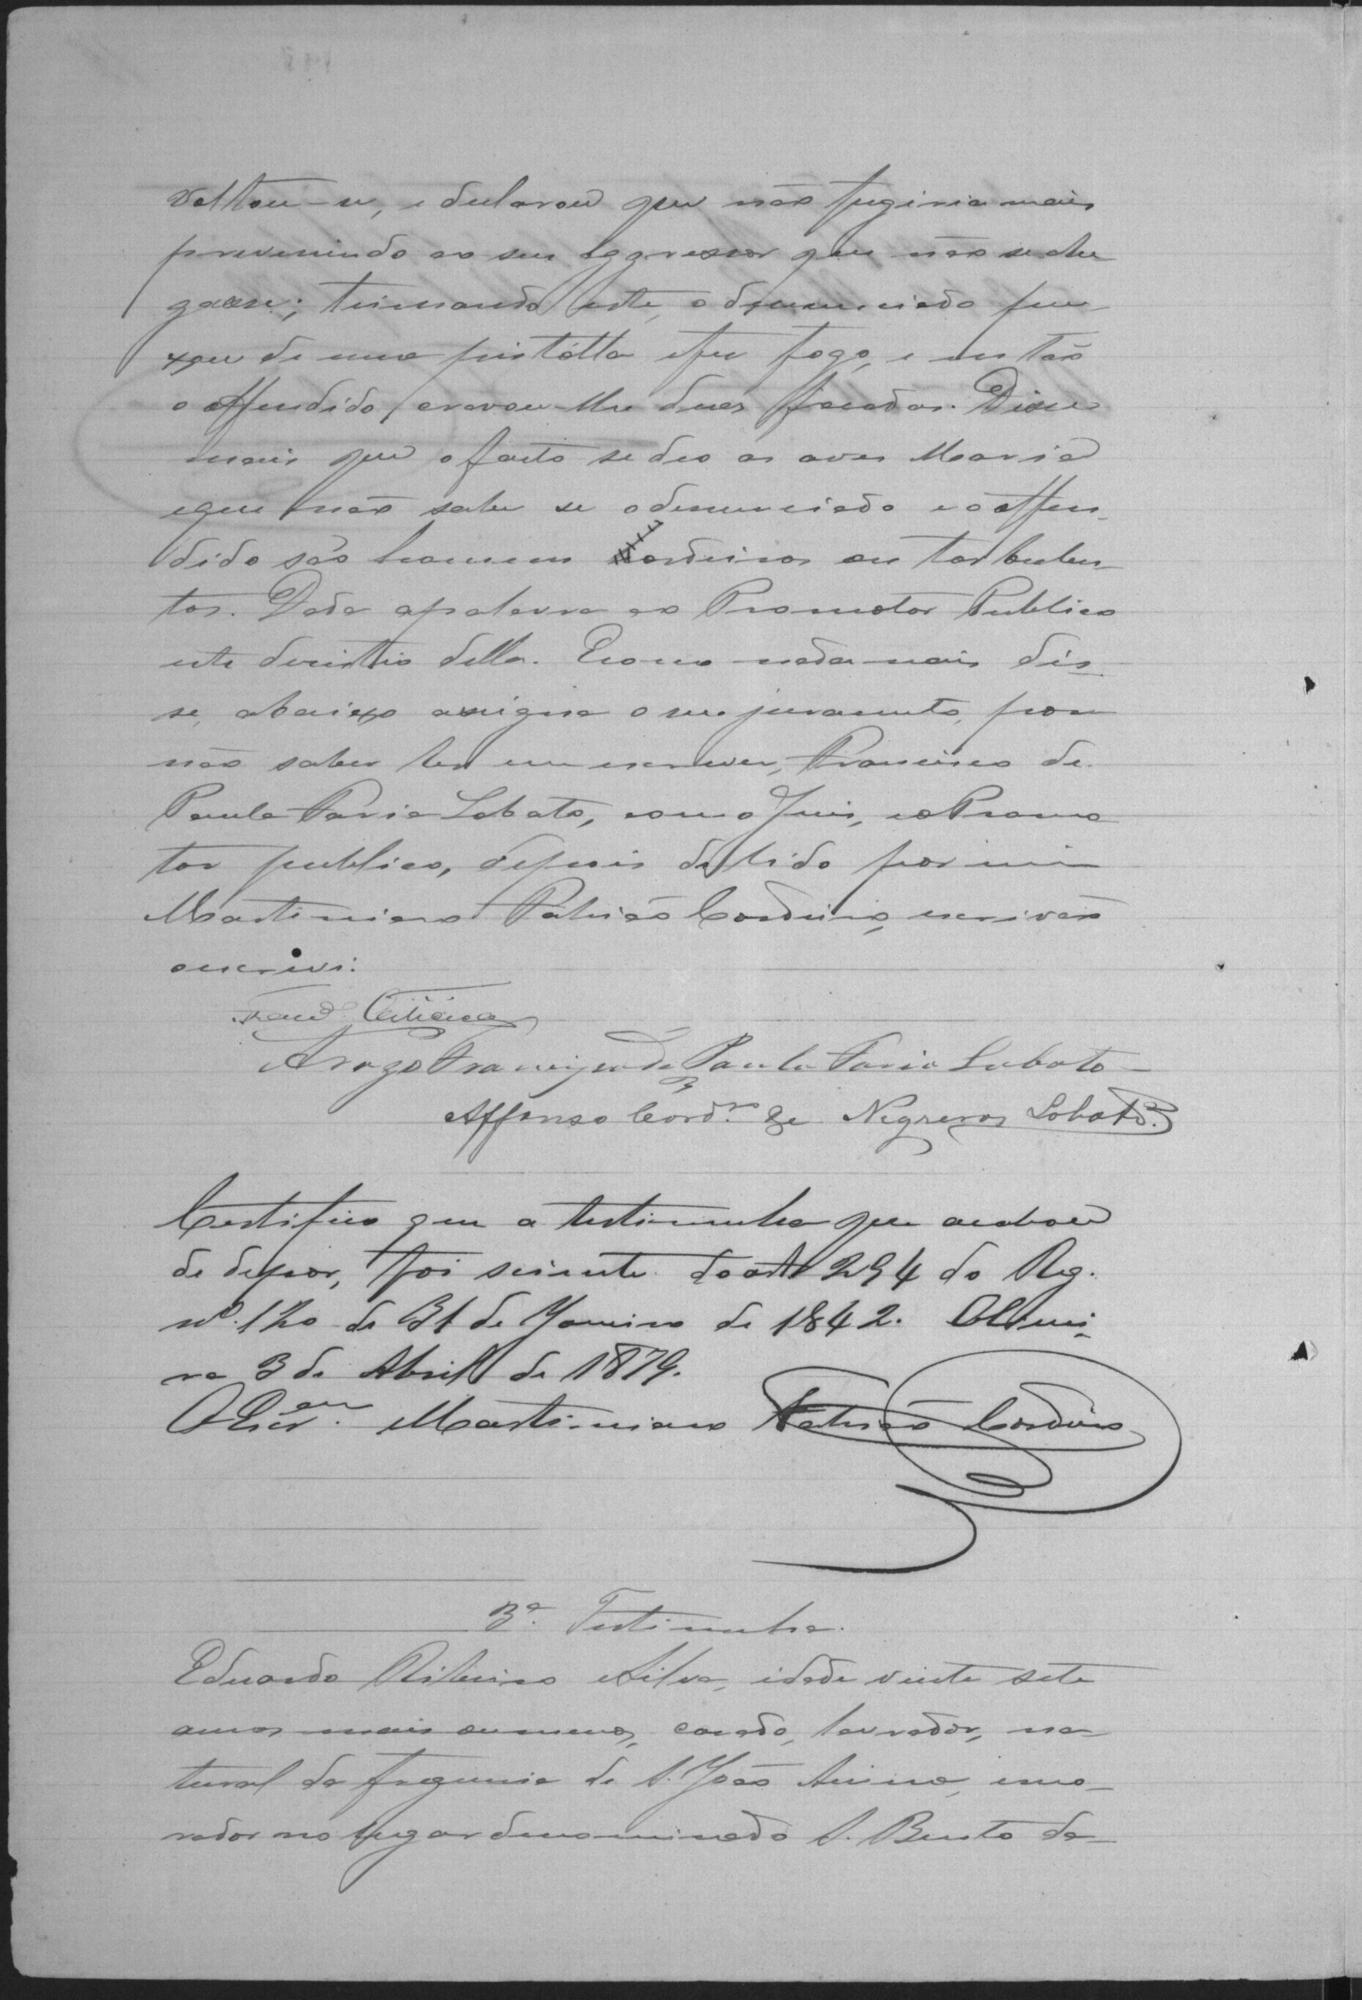 voltou-se, e declarou que não fugiria mais
prevenindo ao seu aggressor que não se che
gasse; teimando este, o denunciado pu-
xou de uma pistólla e fez fogo, e então
o offendido cravou-lhe duas facadas. Disse
mais que o facto se deo as aves Maria
e que não sabe se o denunciado e o offen-
dido são homens ordeiros ou torbulen-
tos. Dada a palavra ao Promotor Publico
este desistio della. E como nada mais dis-
se, abaixo assigna o seu juramento, por
não saber ler nem escrever, Francisco de
Paula Faria Lobato, com o Juis, e o Promo
tor publico, depois de lido por mim
Martiniano Patricio Cordeiro, escrivão
o escrevi.
Arogo Francisco de Paula Faria Lobato
Affonso Cordro de Negreiros Lobato.
Certifico que a testimunha que acabou
de depor, foi sciente do art 294 do Reg.
nº. 120 de 31 de Janeiro de 1842.
3 de Abril de 1879.
O Escram. Martiniano Patricio Cordeiro
3ª. Testimunha.
Eduardo Ribeiro e Silva, idade vinte sete
annos mais ou menos, casado, lavrador, na-
tural da freguesia de S. João e mo-
rador no lugar denominado S. Bento da-